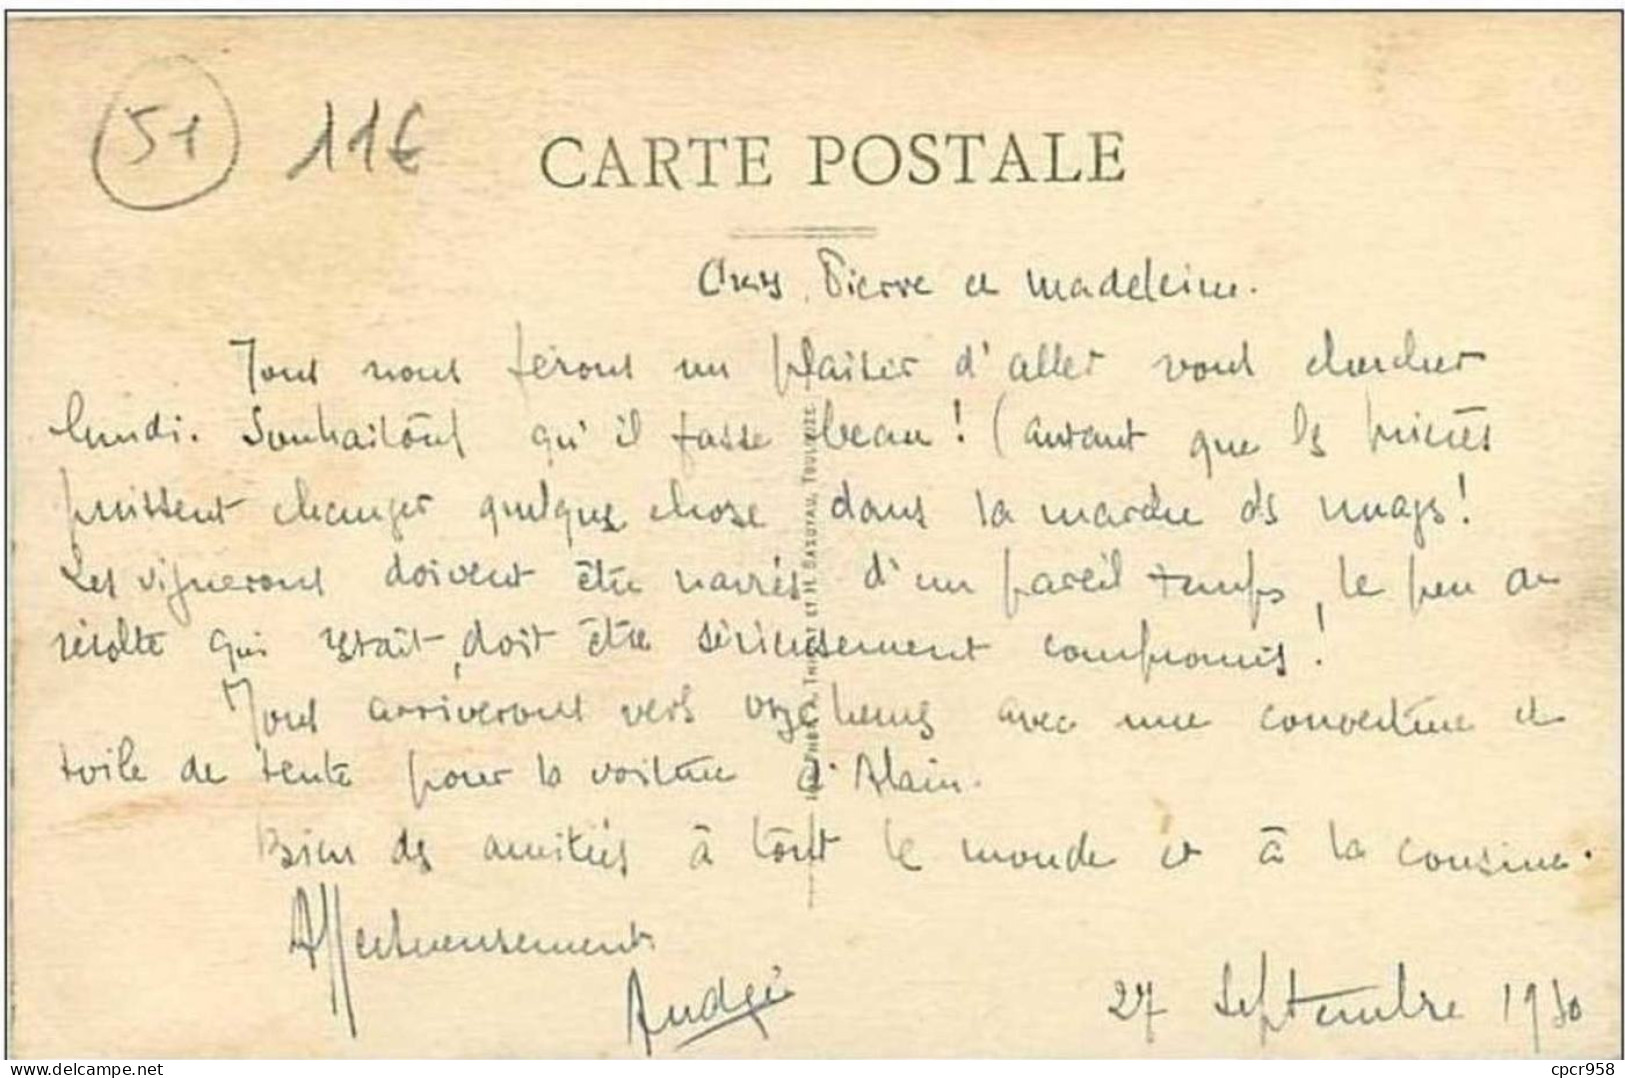 51 11€
CARTE POSTALE
Chers Pierre et Madeleine.
Nous nous ferons un plaisir d'aller vous chercher
lundi. Souhaitons qu'il fasse beau ! (autant que les prières
puissent changer quelque chose dans la marche des nuages !
Les vignerons doivent être navrés d'un pareil temps, le peu de
récolte qui restait, doit être sérieusement compromis !
Nous arriverons vers onze heures avec une couverture et
toile de tente pour la voiture d'Alain.
Bien des amitiés à tout le monde et à la cousine.
Affectueusement
27 Septembre 1930
TOULOUSE
cpcr958